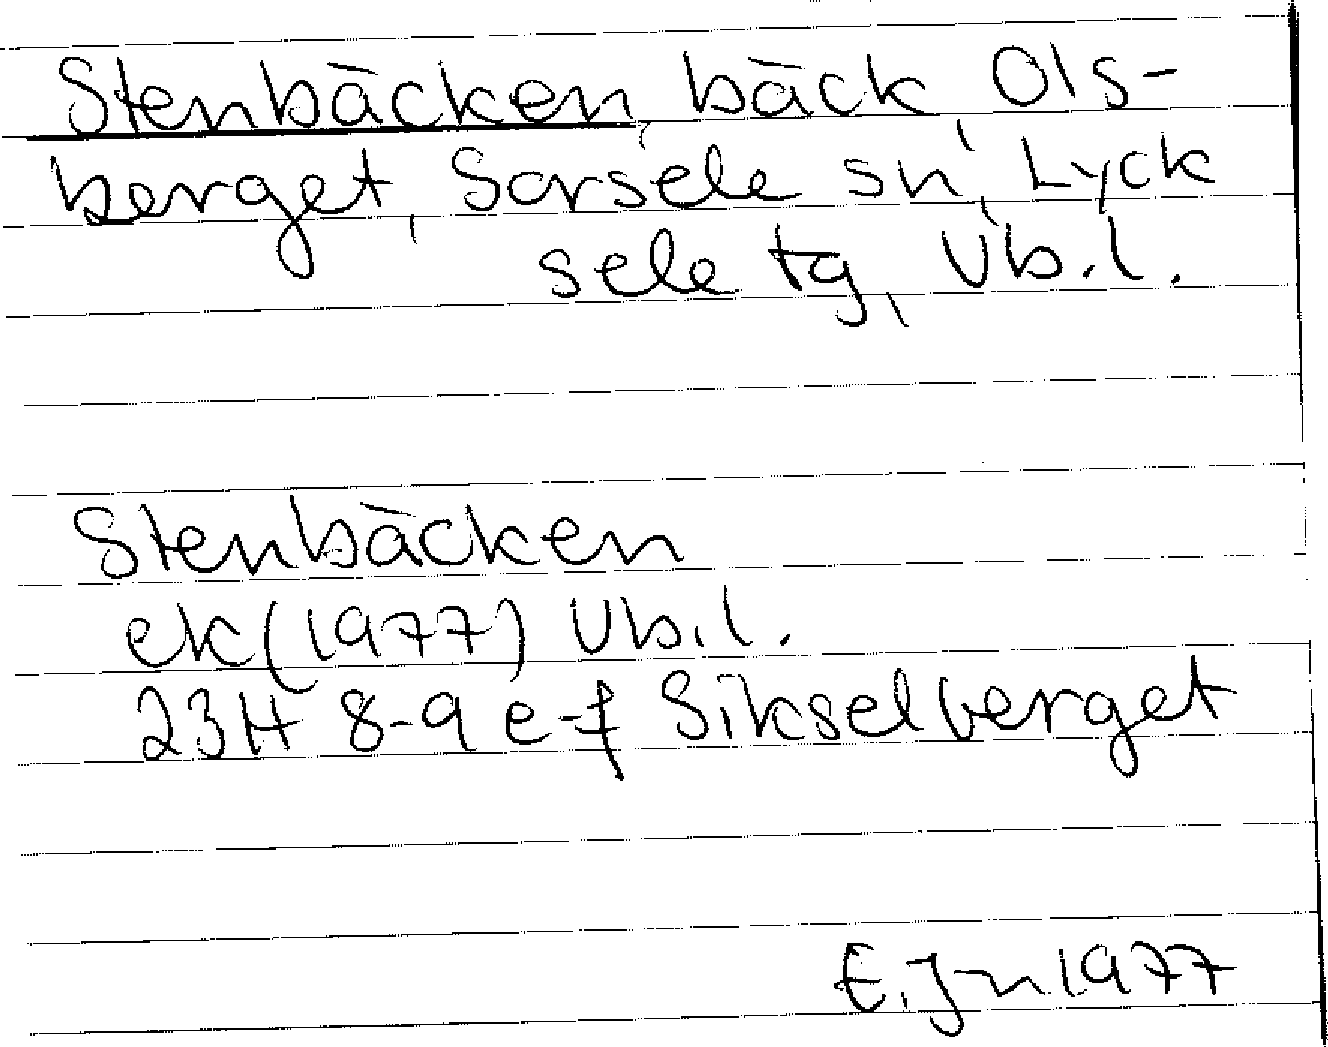 Stenbäcken, bäck Ols-
berget, Sorsele sn, Lyck
sele tg, Vb.l.
Stenbäcken
ek (1977) Vb.l.
23H 8-9 e-f Sikselberget
E. Jn 1977